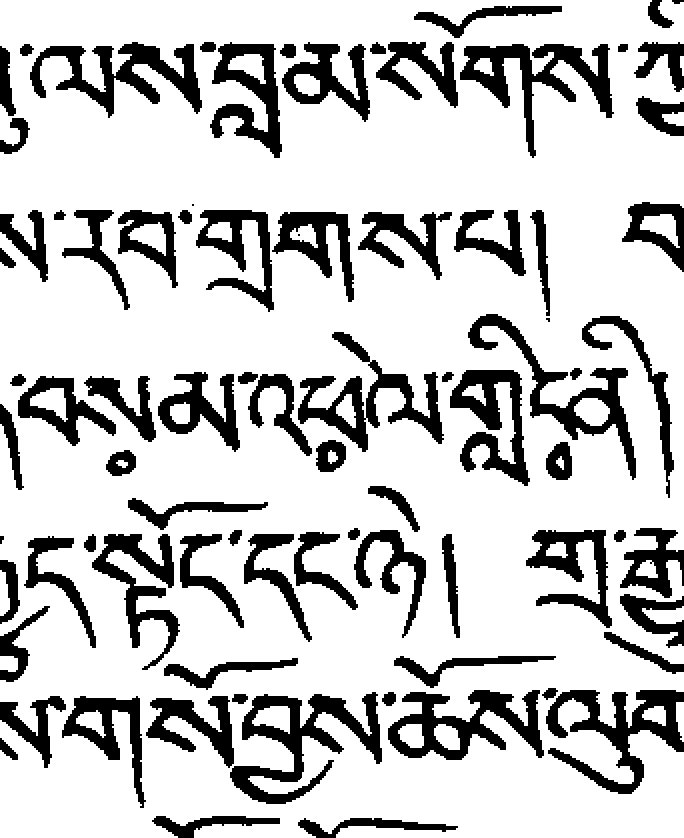 ལས་བླ་མ་སོགས་ཀྱི
ས་རབ་གྲགས་པ། བ
བསམ་འཕེལ་གླིང་ནི།
ང་སྟོང་དང་ཉེ། གྲ་རྒྱ
ས་གསོ་བྱས་ཆོས་ལུབ